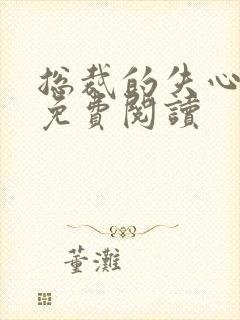 总裁的失心
免費閱讀
董灘